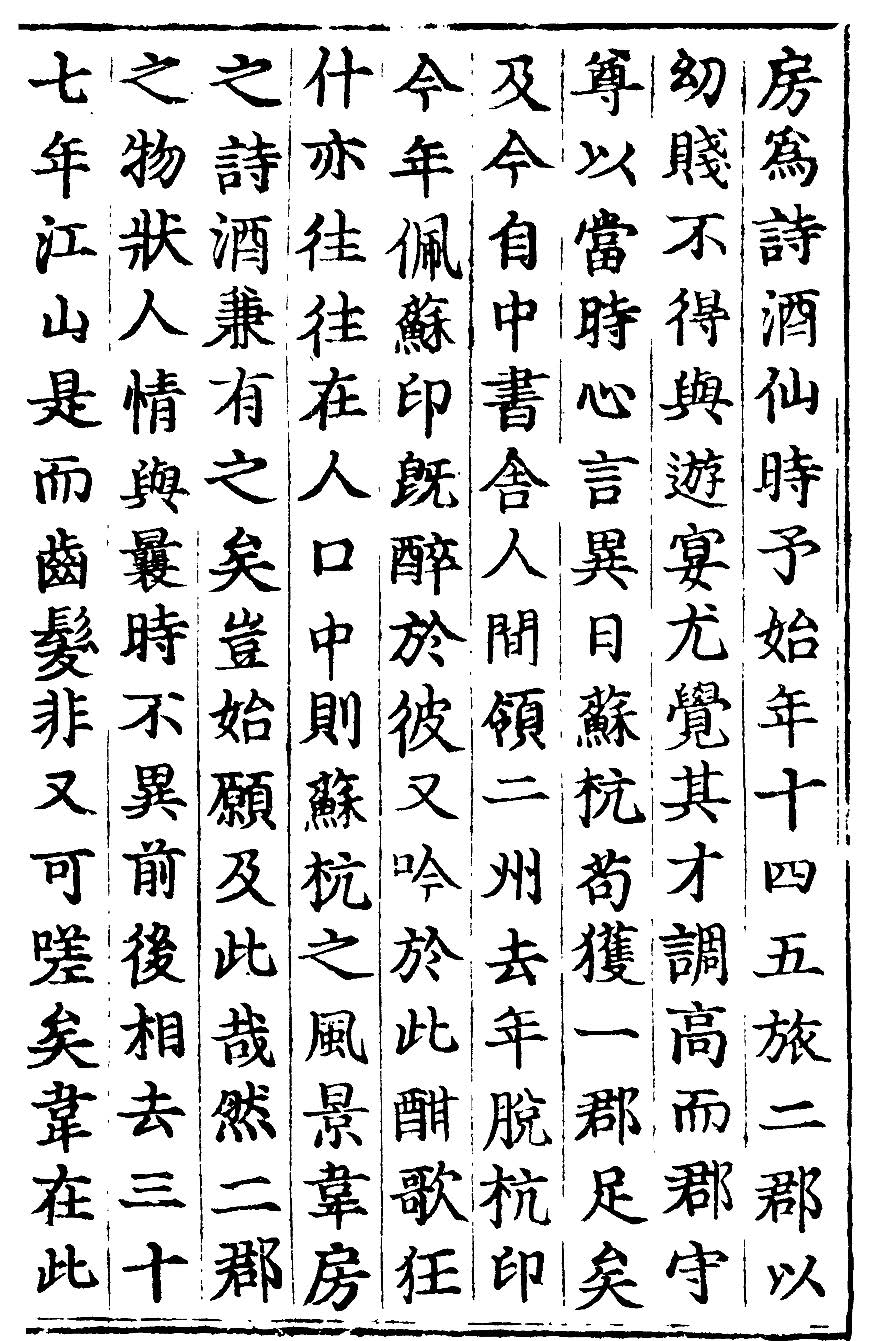 房為詩酒仙時予始年十四五旅二郡以
幼賤不得與遊宴尤覺其才調高而郡守
尊以當時心言異日蘇杭苟獲一郡足矣
及今自中書舎人間領二州去年脫杭印
今年佩蘇印旣醉於彼又吟於此酣歌狂
什亦往往在人口中則蘇杭之風景韋房
之詩酒兼有之矣豈始願及此哉然二郡
之物狀人情與曩時不異前後相去三十
七年江山是而齒髮非又可嗟矣韋在此